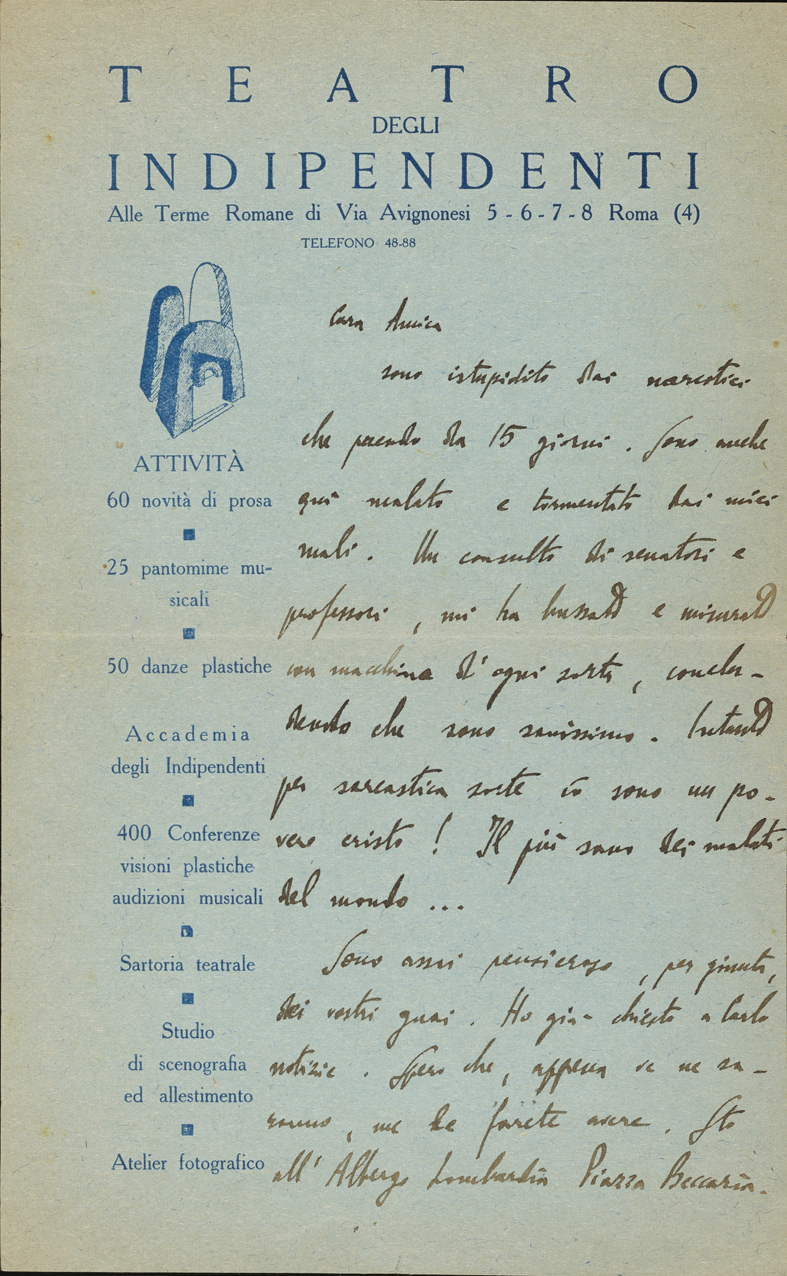 TEATRO
DEGLI
INDIPENDENTI
Alle Terme Romane di Via Avignonesi 5-6-7-8 Roma (4)
TELEFONO 48-88
ATTIVITÀ
60 novità di prosa
25 pantomime mu-
sicali
50 danze plastiche
Accademia
degli Indipendenti
400 Conferenze
visioni plastiche
audizioni musicali
Sartoria teatrale
Studio
di scenografia
ed allestimento
Atelier fotografico
Cara Amica
sono istupidito dai narcotici
che prendo da 15 giorni. Sono anche
qui malato e tormentato dai miei
mali. Un consulto di senatori e
professori, mi ha bussato e misurato
con macchine d'ogni sorta, conclu-
dendo che sono sanissimo. Intanto
per sarcastica sorte io sono un po-
vero cristo! Il più sano dei malati
del mondo ...
Sono assai pensieroso, per giunta,
dei vostri guai. Ho già chiesto a Carlo
notizie. Spero che, appena ve ne sa-
ranno, me le farete avere. Sto
all'Albergo Lombardia Piazza Beccaria.